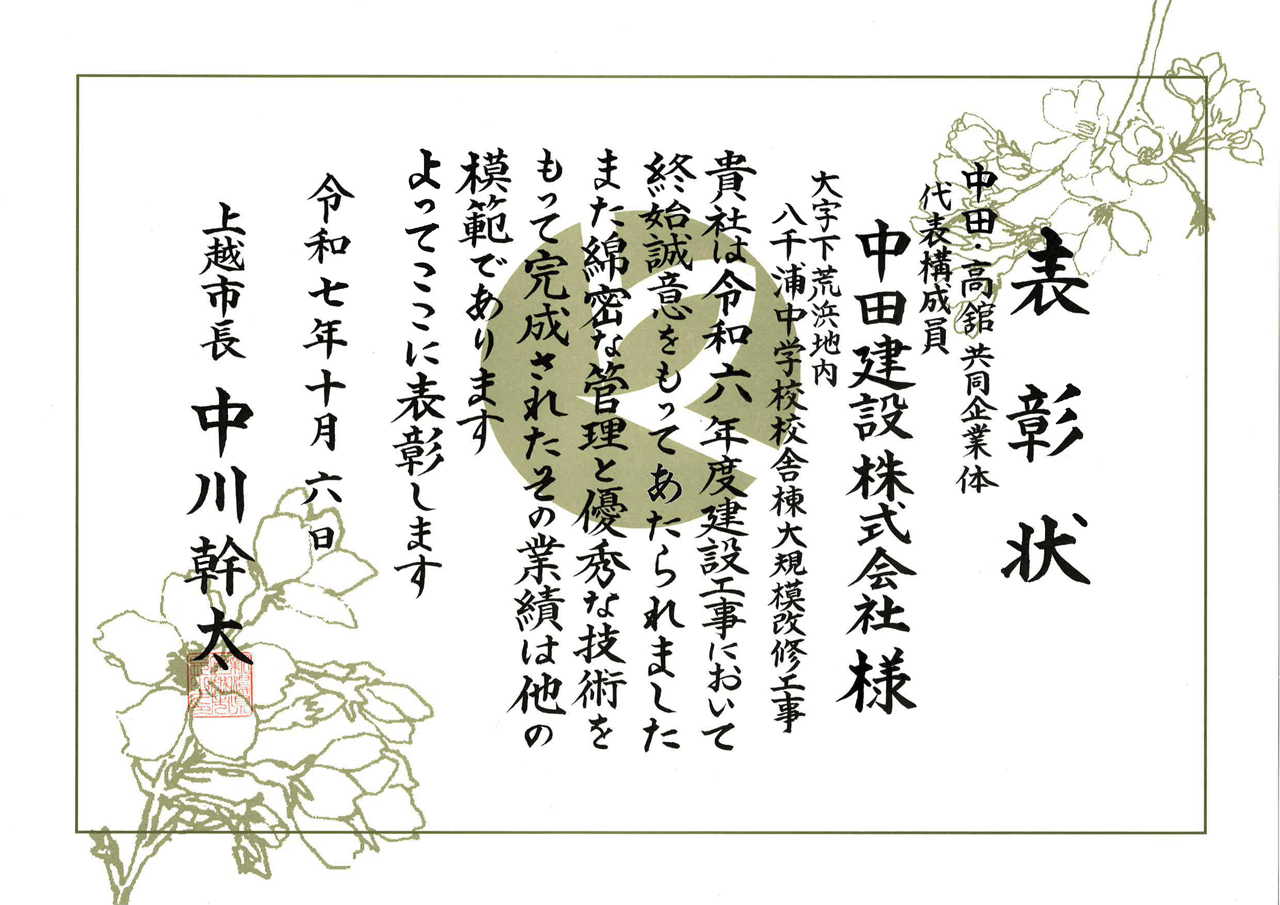 表彰状
中田・高舘共同企業体
代表構成員
中田建設株式会社様
大字下荒浜地内
八千浦中学校校舎棟大規模改修工事
貴社は令和六年度建設工事において
終始誠意をもってあたられました
また綿密な管理と優秀な技術を
もって完成されたその業績は他の
模範であります
よってここに表彰します
令和七年十月六日
上越市長 中川幹太